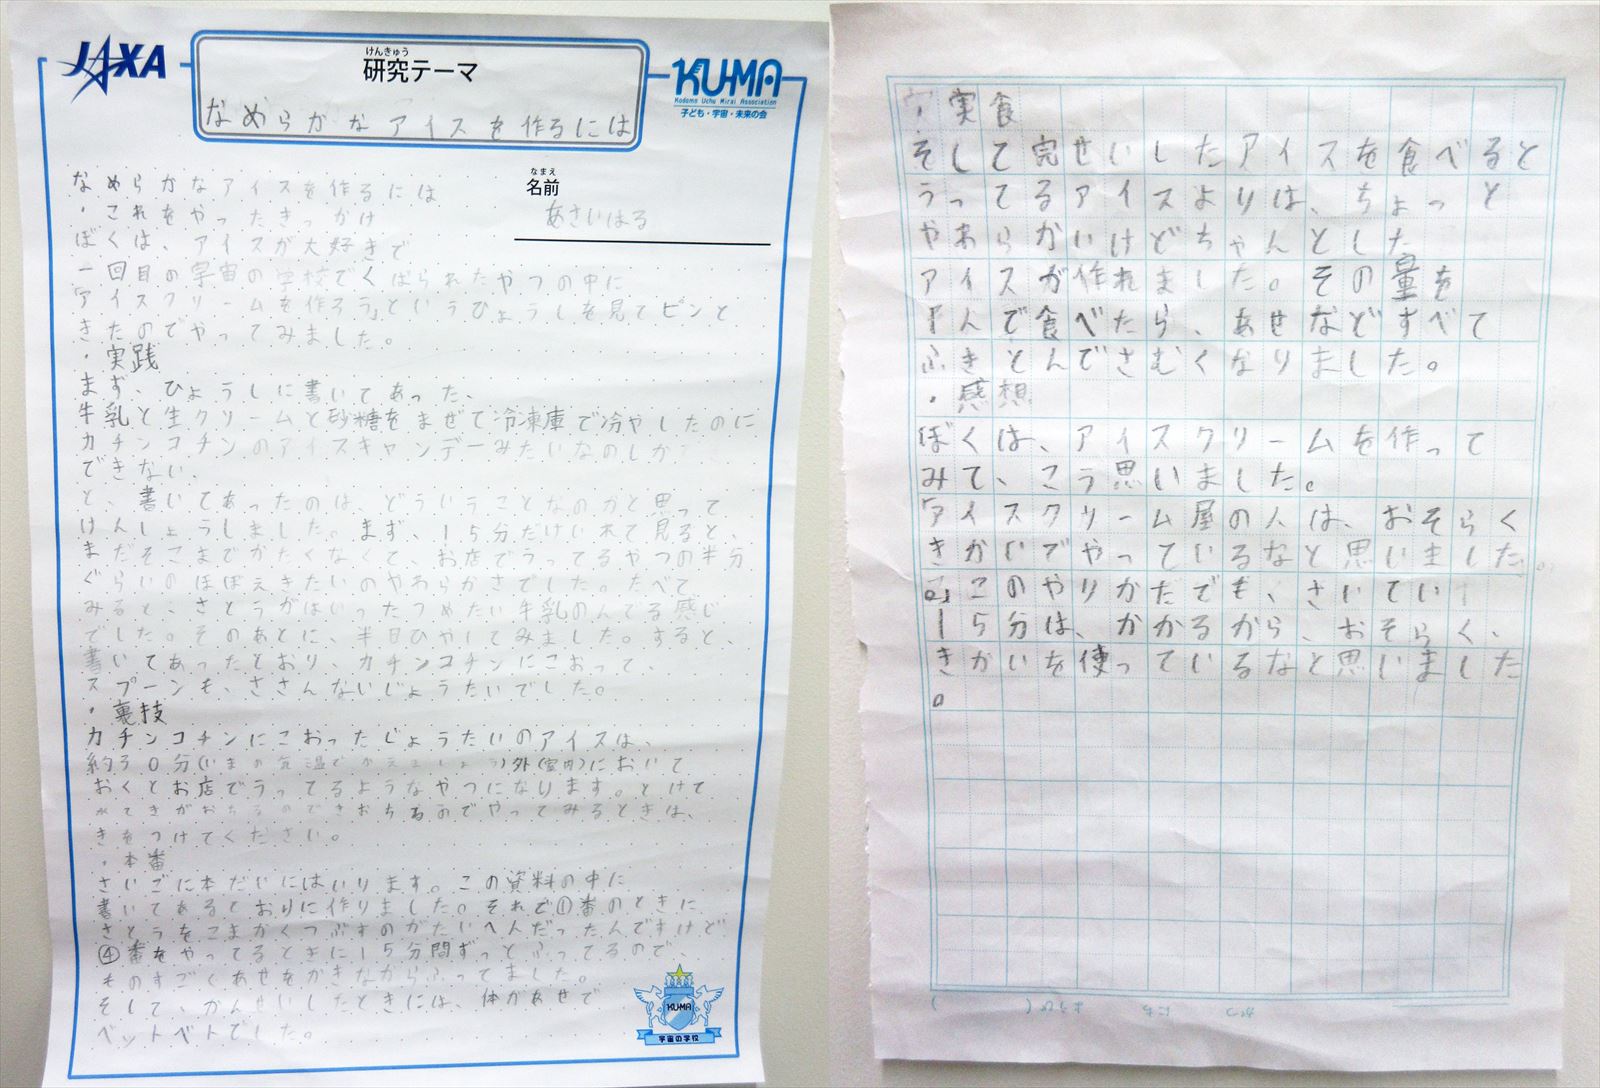 JAXA
けんきゅう
研究テーマ
なめらかなアイスを作るには
KU-MA
Kodomo Uchu Mirai Association
子ども・宇宙・未来の会
なまえ
名前
あさいはる
なめらかなアイスを作るには
・これをやったきっかけ
ぼくは、アイスが大好きで
一回目の宇宙の学校でくばられたやつの中に
「アイスクリームを作ろう」というひょうしを見てピンと
きたのでやってみました。
・実践
まず、ひょうしに書いてあった、
牛乳と生クリームと砂糖をまぜて冷凍庫で冷やしたのに
カチンコチンのアイスキャンデーみたいなのしか
できない、
と、書いてあったのは、どういうことなのかと思って、
けんしょうしました。まず、15分だけいれて見ると、
まだそこまでかたくなくて、お店でうってるやつの半分
ぐらいのほぼえきたいのやわらかさでした。たべて
みると、さとうがはいったつめたい牛乳のんでる感じ
でした。そのあとに、半日ひやしてみました。すると、
書いてあったとおり、カチンコチンにこおって、
スプーンも、ささんないじょうたいでした。
・裏技
カチンコチンにこおったじょうたいのアイスは、
約30分(いまの気温でかえましょう)外(室内)において
おくとお店でうってるようなやつになります。とけて
きをつけてください。
・本番
さいごに本だいにはいります。この資料の中に
書いてあるとおりに作りました。それで①番のときに
さとうをこまかくつぶすのがたいへんだったんですけど
④番をやってるときに15分間ずっとふってるので、
ものすごくあせをかきながらふってました。
そして、かんせいしたときには、体があせで
ベットベトでした。
KU-MA
宇宙の学校
・実食
そして完せいしたアイスを食べると
うってるアイスよりは、ちょっと
やわらかいけどちゃんとした
アイスが作れました。その量を
1人で食べたら、あせなどすべて
ふきとんでさむくなりました。
・感想
ぼくは、アイスクリームを作って
みて、こう思いました。
「アイスクリーム屋の人は、おそらく
きかいでやっているなと思いました
。」このやりかたでも、さいてい
15分は、かかるから、おそらく、
きかいを使っているなと思いました
。